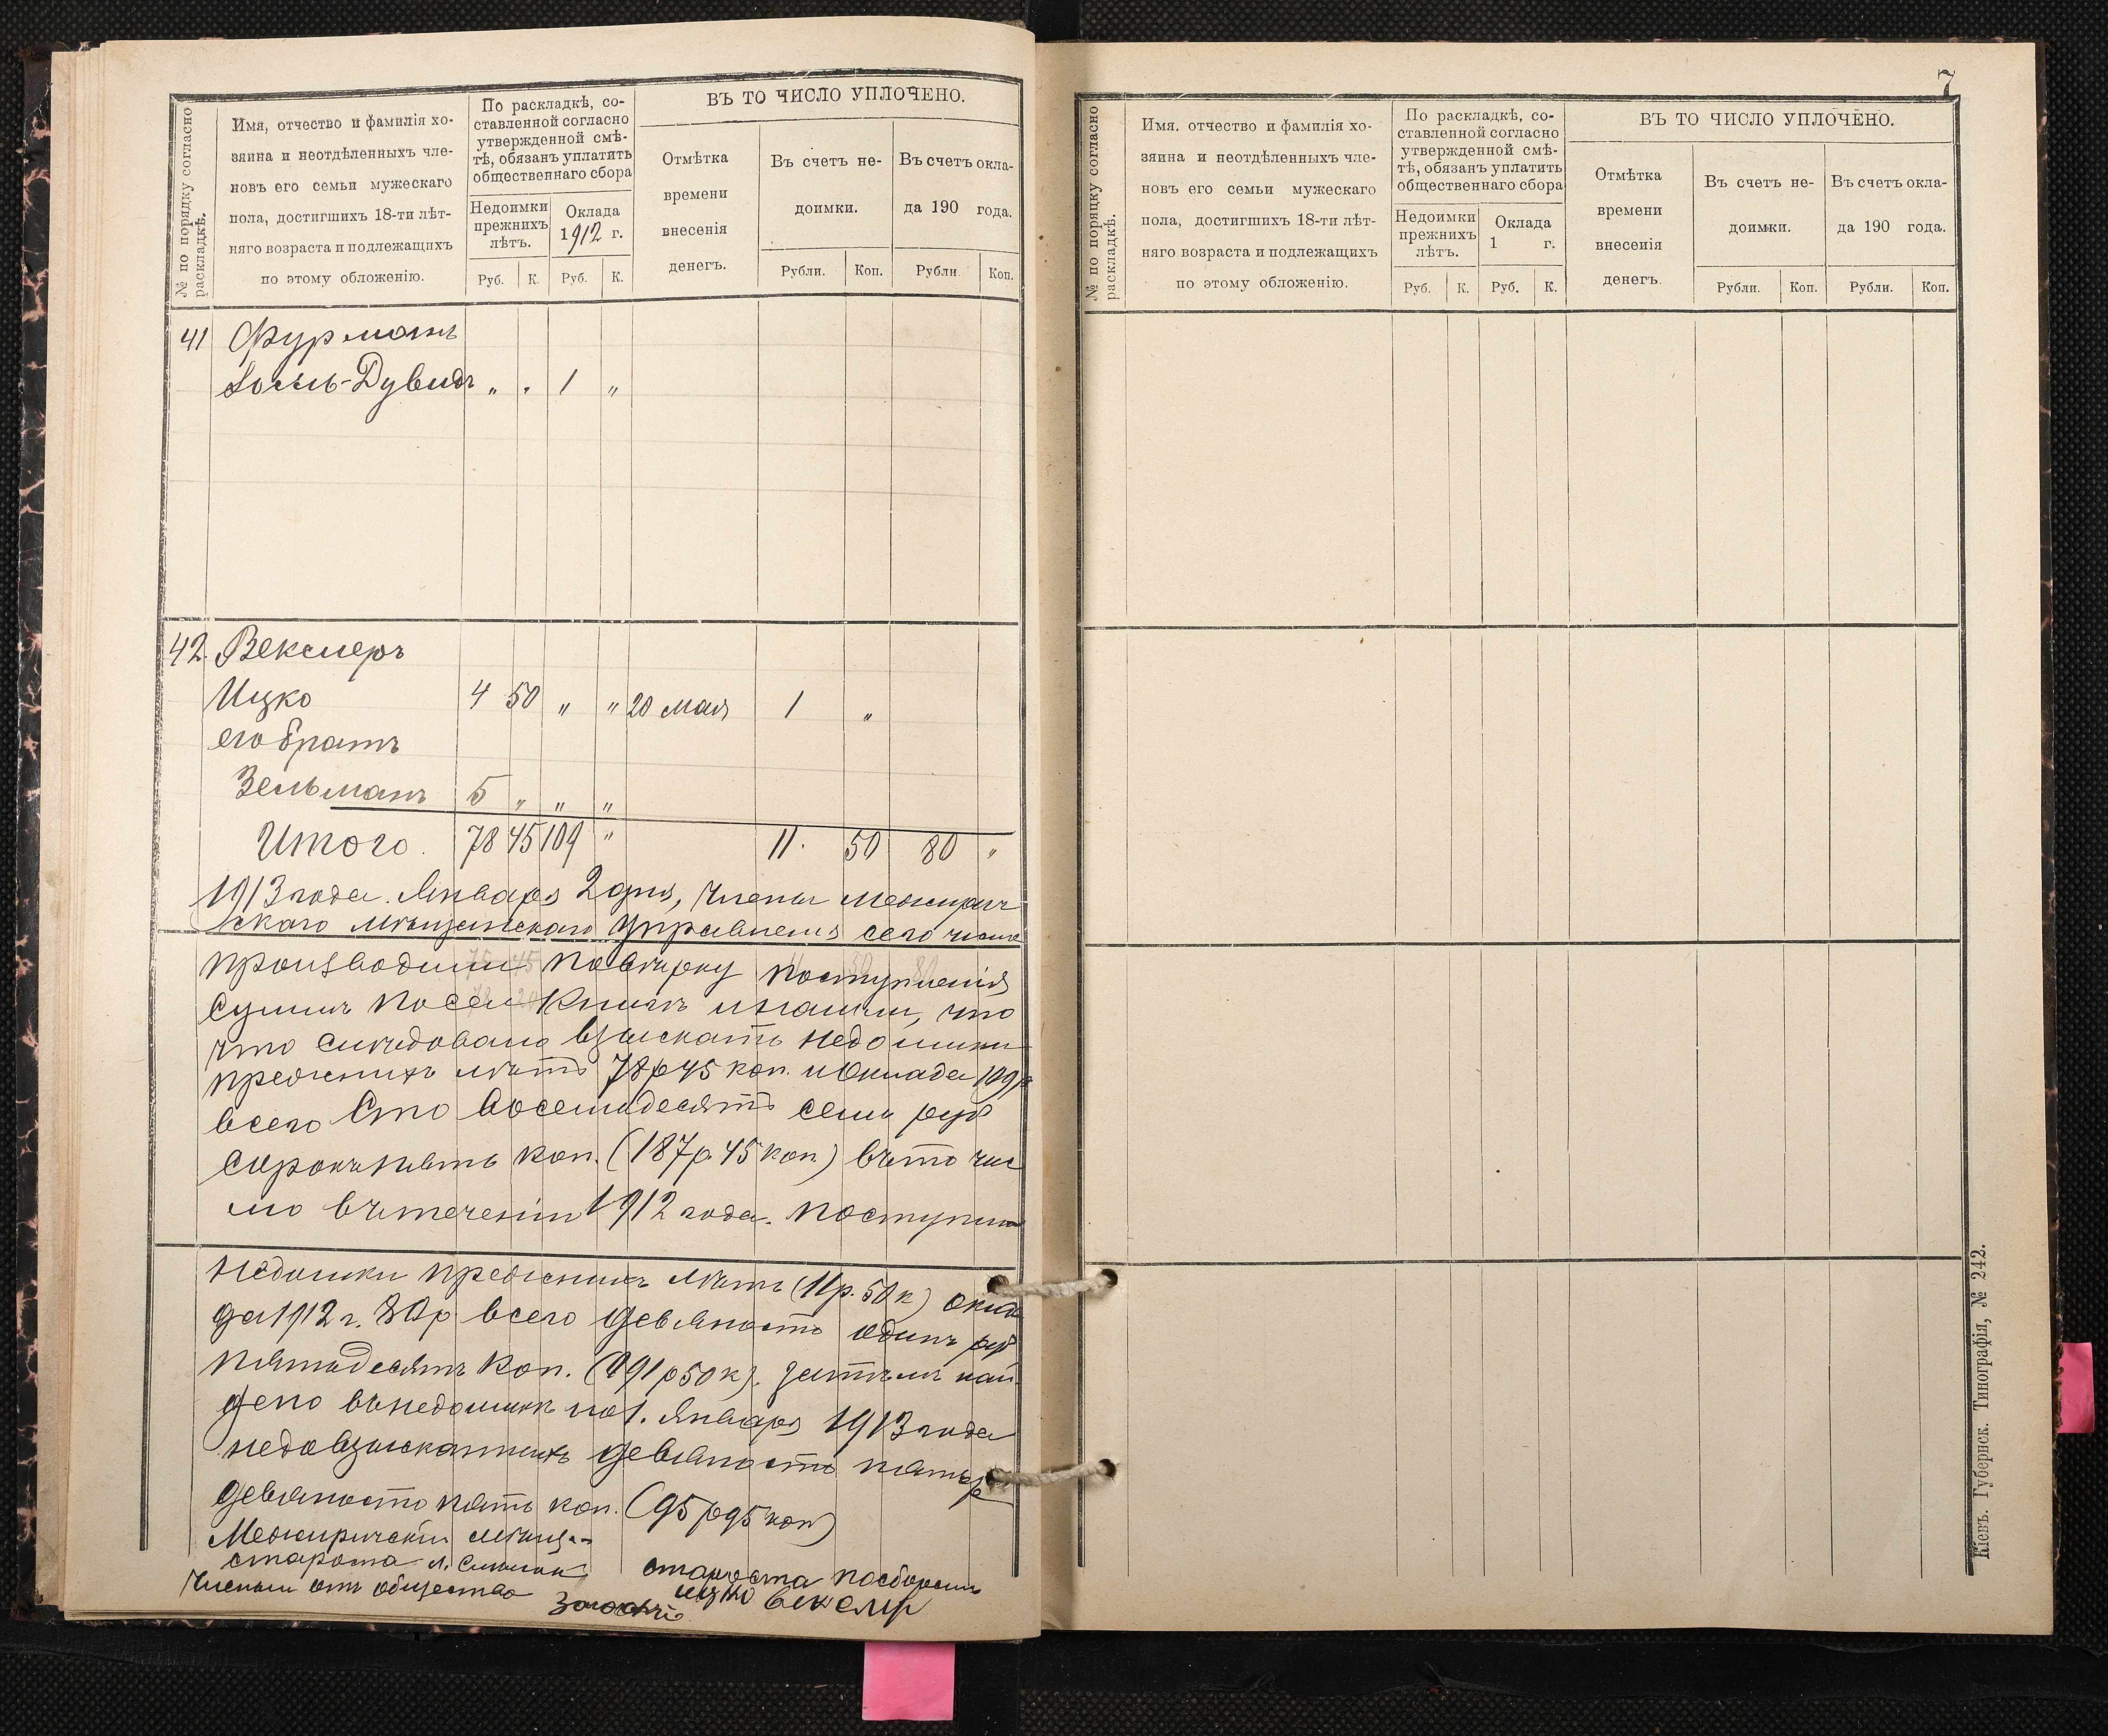 № по порядку согласно раскладкѣ.
Имя, отчество и фамилія хо-
зяина и неотдѣленныхъ чле-
новъ его семьи мужескаго
пола, достигшихъ 18-ти лѣт-
няго возраста и подлежащихъ
по этому обложенію.
По раскладкѣ, со-
ставленной согласно
утвержденной смѣ-
тѣ, обязанъ уплатить
общественнаго сбора
Недоимки
прежнихъ
лѣтъ.
Оклада
1912 г.
Руб. К. Руб. К.
ВЪ ТО ЧИСЛО УПЛОЧЕНО.
Отмѣтка
времени
внесенія
денегъ.
Въ счетъ не-
доимки.
Въ счетъ окла-
да 190 года.
Рубли. Коп. Рубли. Коп.
41 Фурманъ
Іосель-Дувидъ " " 1 "
42. Векслеръ
Ицко 4 50 " " 20 мая 1 "
его братъ
Зельманъ 5 " " "
Итого. 78 45 109 " 11. 50 80 "
1913 года. Января 2 дня, Члены Межирич
скаго мѣщанскаго Управленія сего числа
производили повѣрку поступленія
Суммъ по сей Книгѣ и нашли, что
что слѣдовало взыскать недоимки
прежнихъ лѣтъ 78 р 45 коп. и Оклада 109 р
всего Сто восемьдесятъ семь руб
сорокъ пять коп. (187 р. 45 коп) въ то чис
ло въ теченіи 1912 года. поступило
недоимки прежнихъ лѣтъ (11 р. 50 к) окла
да 1912 г. 80 р всего девяносто одинъ руб
пятьдесятъ коп. (91 р 50 к). затѣмъ най
дено въ недоимкѣ на 1. Января 1913 года
недовзысканныхъ девяносто пять р
девяносто пять коп. (95 р 95 коп)
Межиричскій мѣщан
староста
Члены отъ общества
староста по сборамъ
ицко векслер
7
№ по порядку согласно раскладкѣ.
Имя. отчество и фамилія хо-
зяина и неотдѣленныхъ чле-
новъ его семьи мужескаго
пола, достигшихъ 18-ти лѣт-
няго возраста и подлежащихъ
по этому обложенію.
По раскладкѣ, со-
ставленной согласно
утвержденной смѣ-
тѣ, обязанъ уплатить
общественнаго сбора
Недоимки
прежнихъ
лѣтъ.
Оклада
1 г.
Руб. К. Руб. К.
ВЪ ТО ЧИСЛО УПЛОЧЕНО.
Отмѣтка
времени
внесенія
денегъ.
Въ счетъ не-
доимки.
Въ счетъ окла-
да 190 года.
Рубли. Коп. Рубли. Коп.
Кіевъ. Губернск. Типографія, № 242.